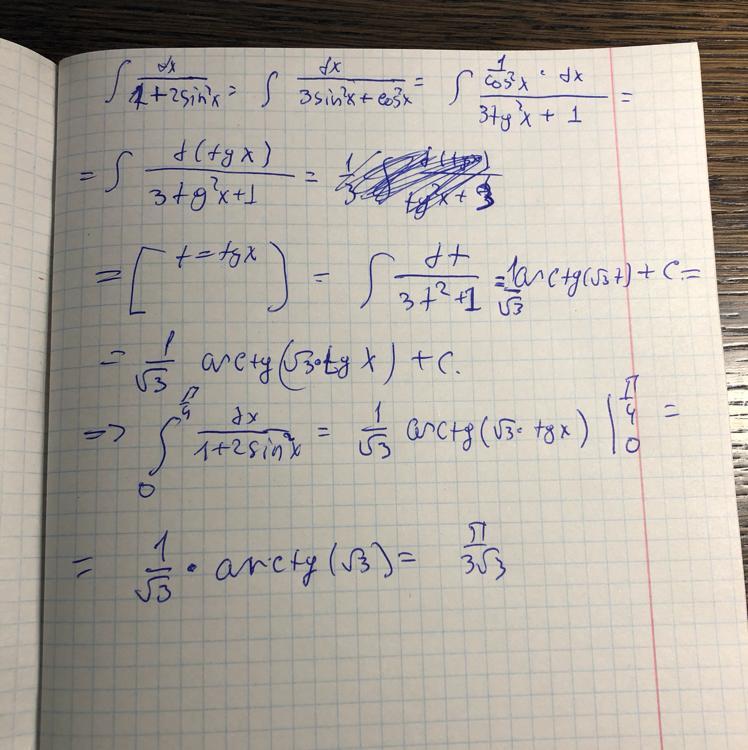 ∫ dx / (1+2sin²x) = ∫ dx / (3sin²x + cos²x) = ∫ (1/cos²x · dx) / (3tg²x + 1) =
= ∫ d(tgx) / (3tg²x+1) =
= [t = tgx] = ∫ dt / (3t²+1) = 1/√3 arctg(√3t) + C =
= 1/√3 arctg(√3·tgx) + C.
=> ∫₀^(π/4) dx / (1+2sin²x) = 1/√3 arctg(√3·tgx) |₀^(π/4) =
= 1/√3 · arctg(√3) = π / (3√3)